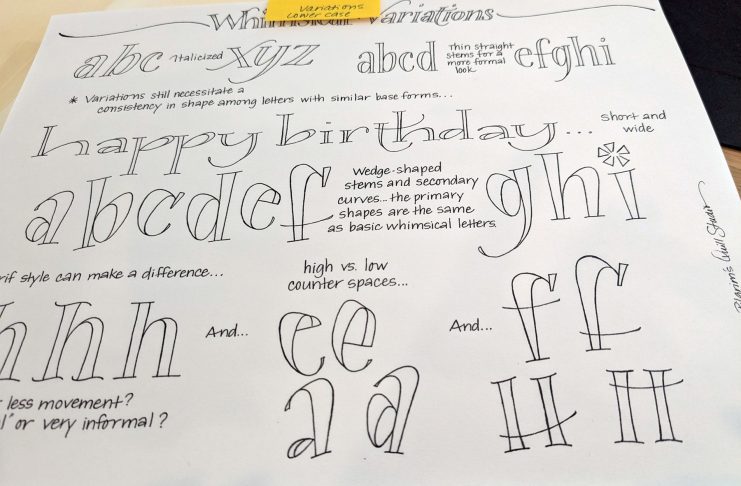 Variations
Lower case
Whimsical Variations
abc Italicized xyz
abcd Thin straight
stems for a
more formal
look efghi
* Variations still necessitate a
consistency in shape among letters with similar base forms...
happy birthday... short and
wide
abcdef Wedge-shaped
stems and secondary
curves... the primary
shapes are the same
as basic whimsical letters. ghi
rif style can make a difference...
hhh And...
less movement?
l" or very informal?
high vs. low
counter spaces...
ee And... ff
aa HH
Pilgrim's Quill Studio